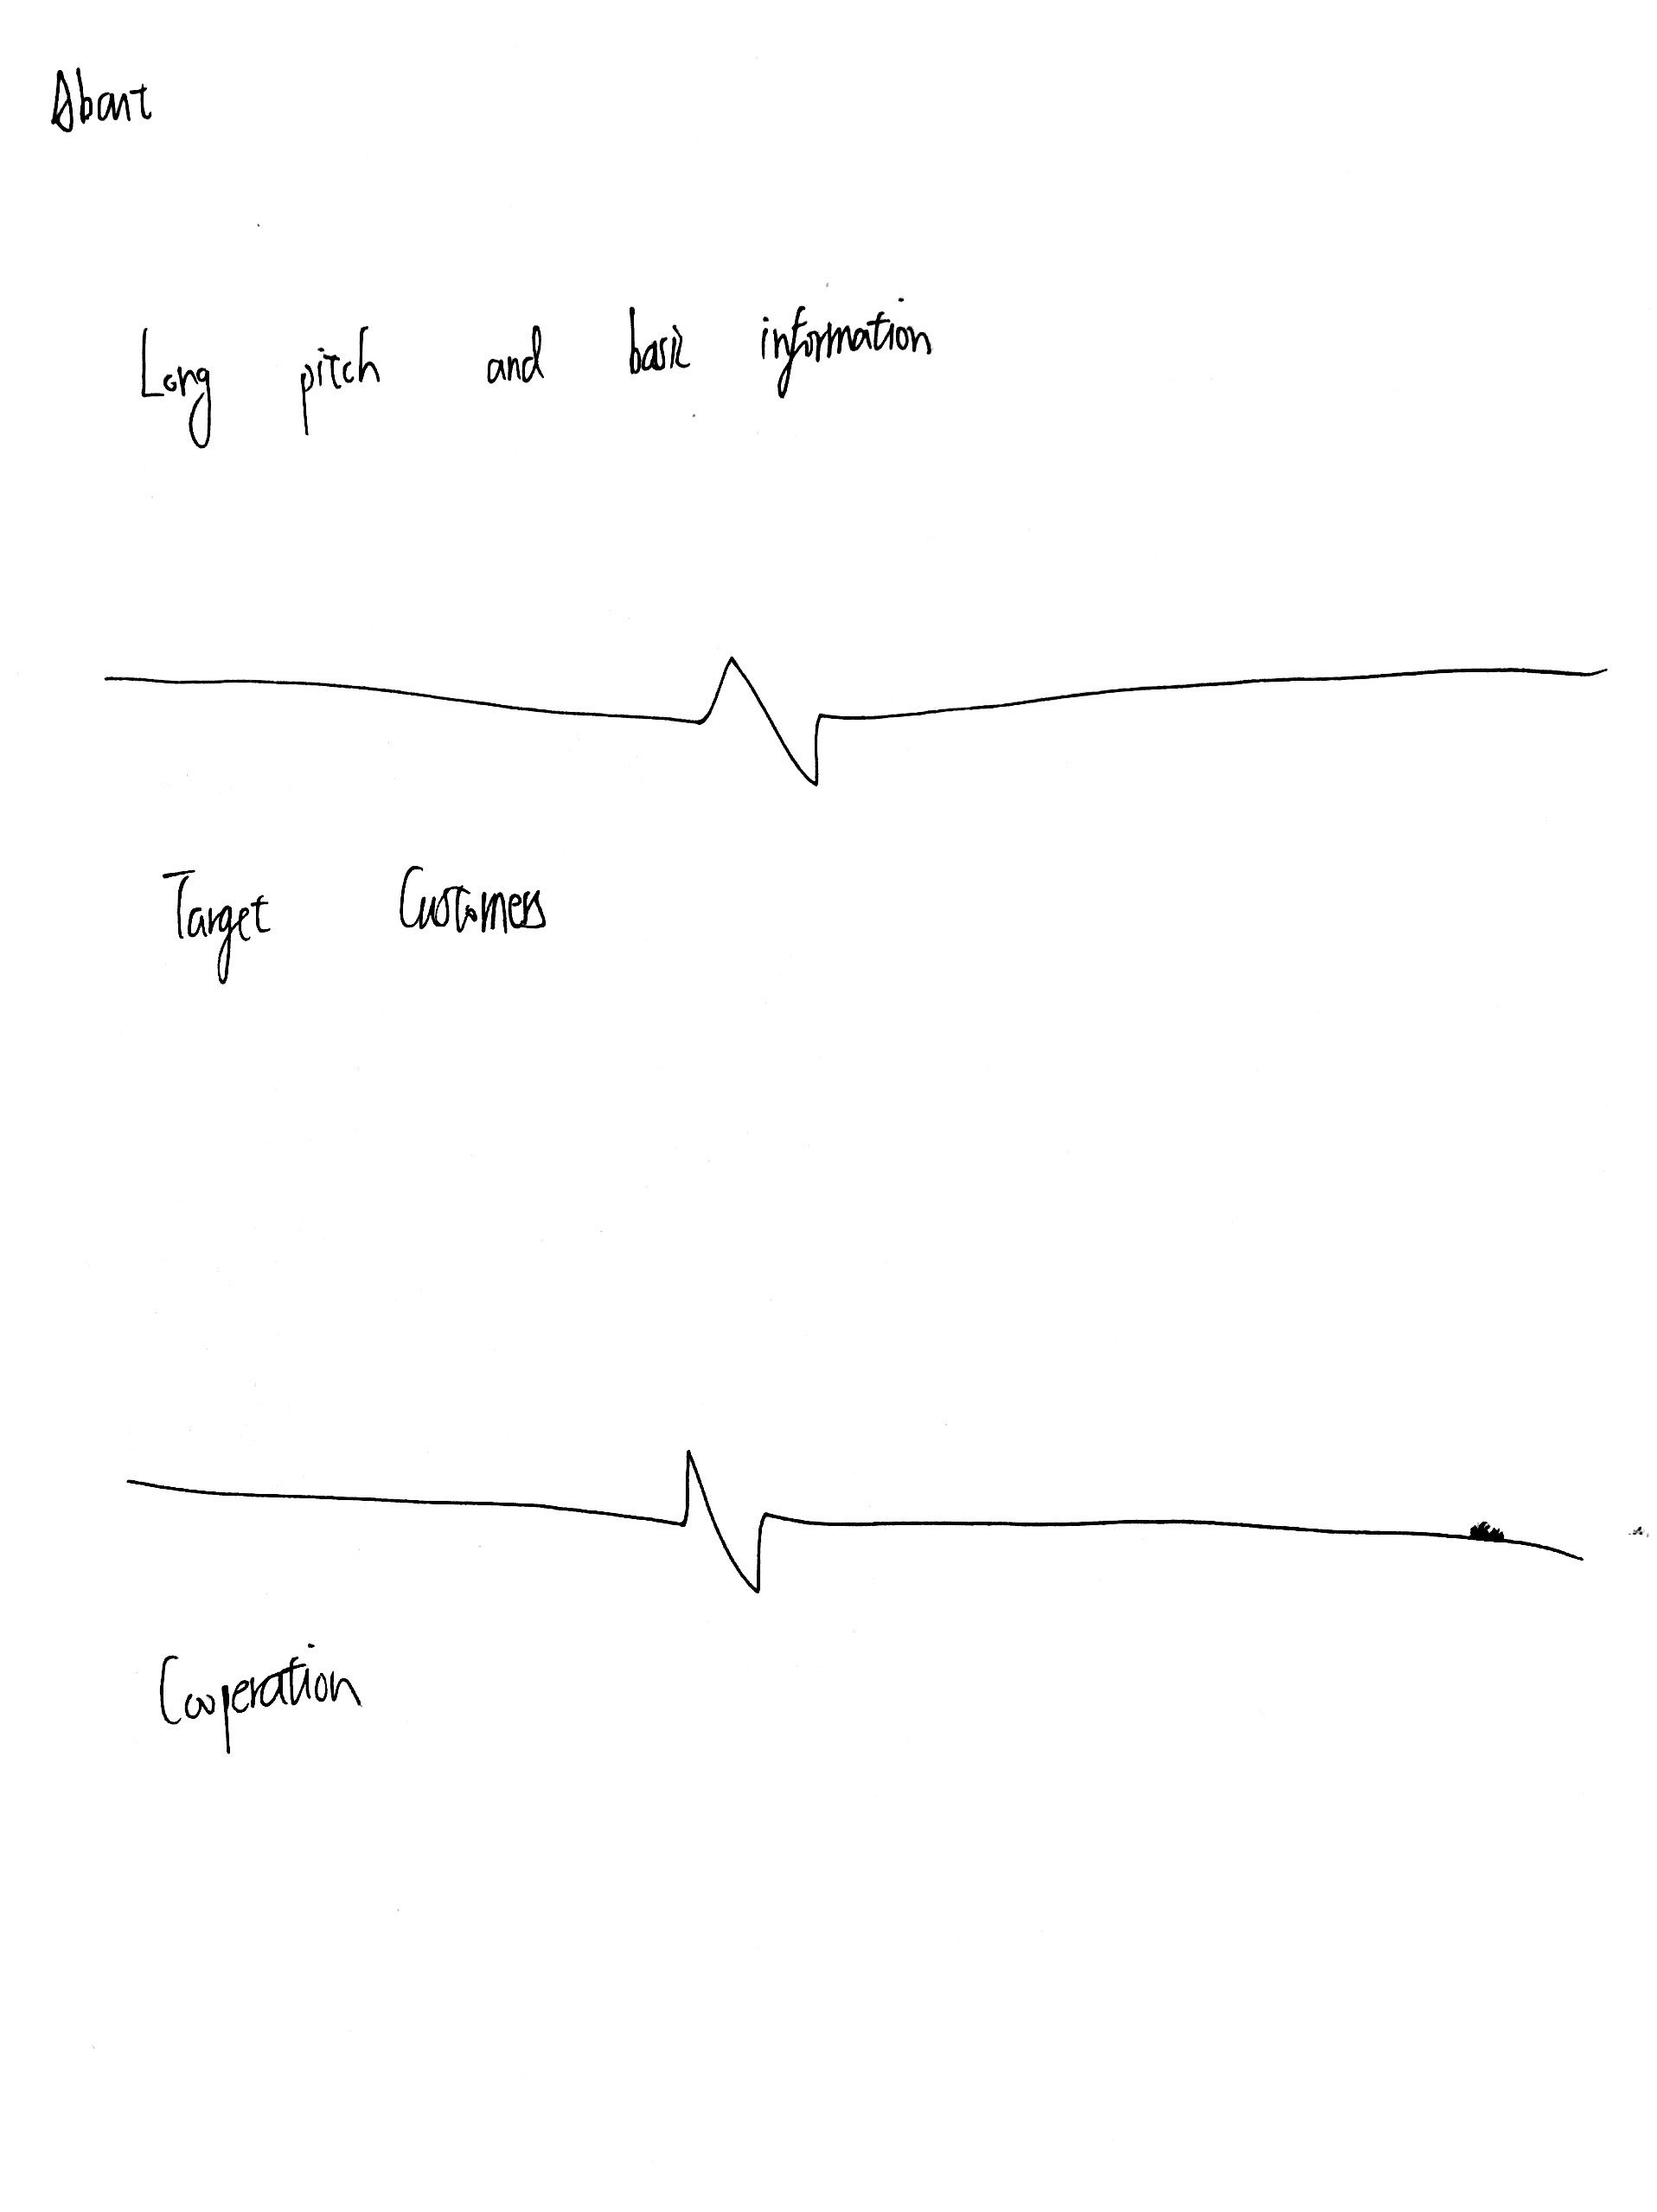 About
Long pitch and basic information
Target Customers
Cooperation